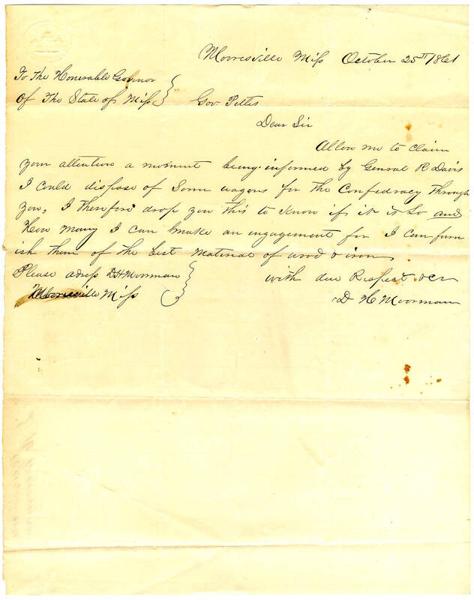 Mooresville Miss October 25th 1861
To The Honerable Govnor
of The State of Miss } Gov Pettus
Dear Sir
Allow me to claim
your attention a moment being informed by General R Davis
I could dispose of Some wagons for the Confedracy Through
you, I therefore drop you this to Know if it is So and
How many I can make an engagement for I can furn
ish them of the Best Material of wood & iron
Please adress D H Moorman
Mooresville Miss
with due Respect &c
D H Moorman